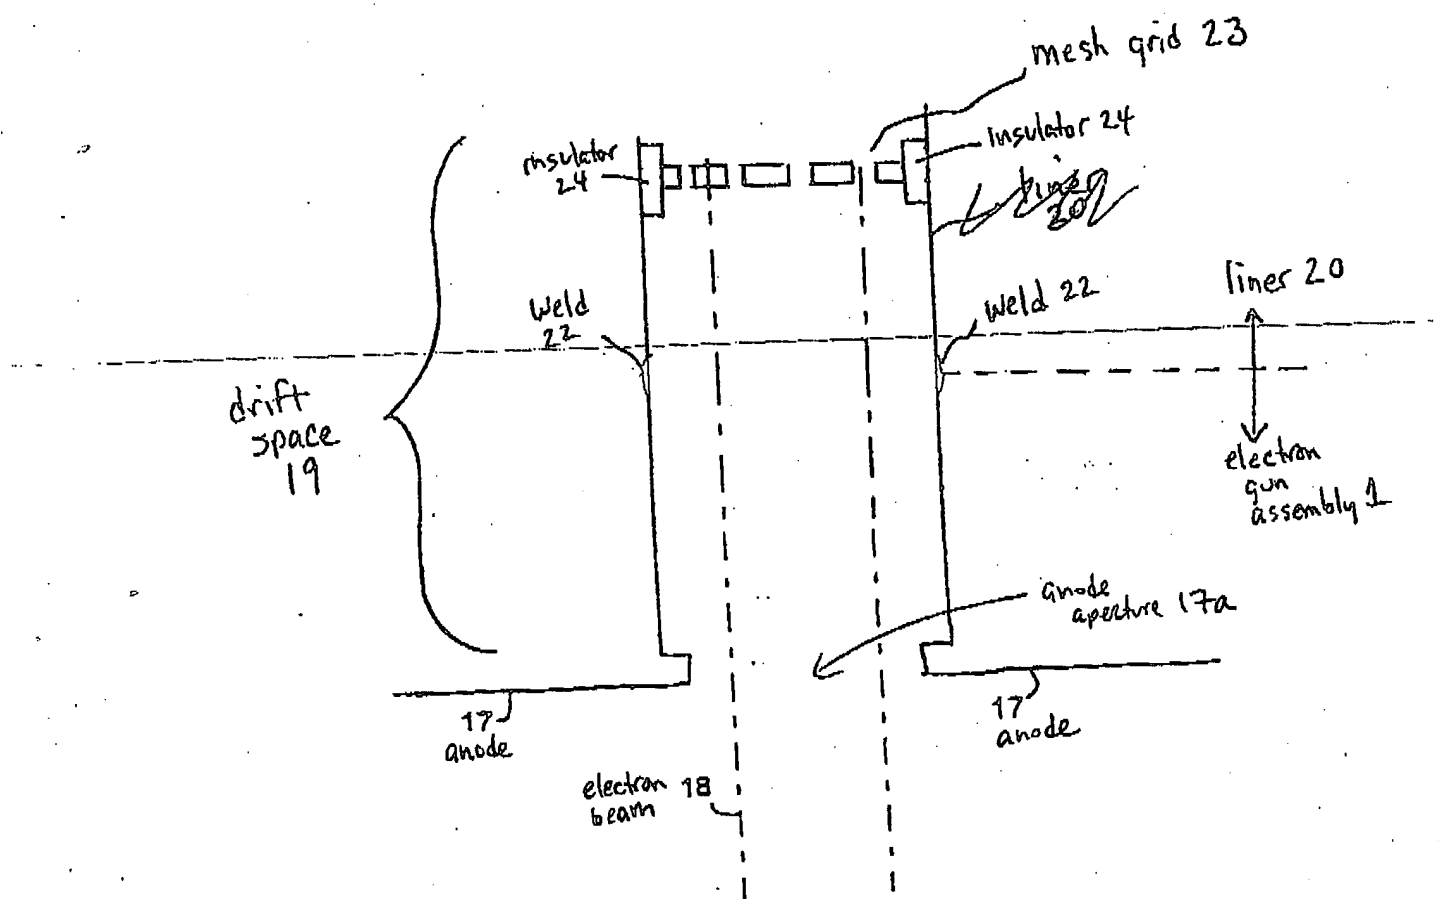 mesh grid 23
insulator 24
insulator
24
liner
20
liner 20
weld 22
Weld
22
drift
space
19
electron
gun
assembly 1
anode
aperture 17a
17
anode
17
anode
electron 18
beam